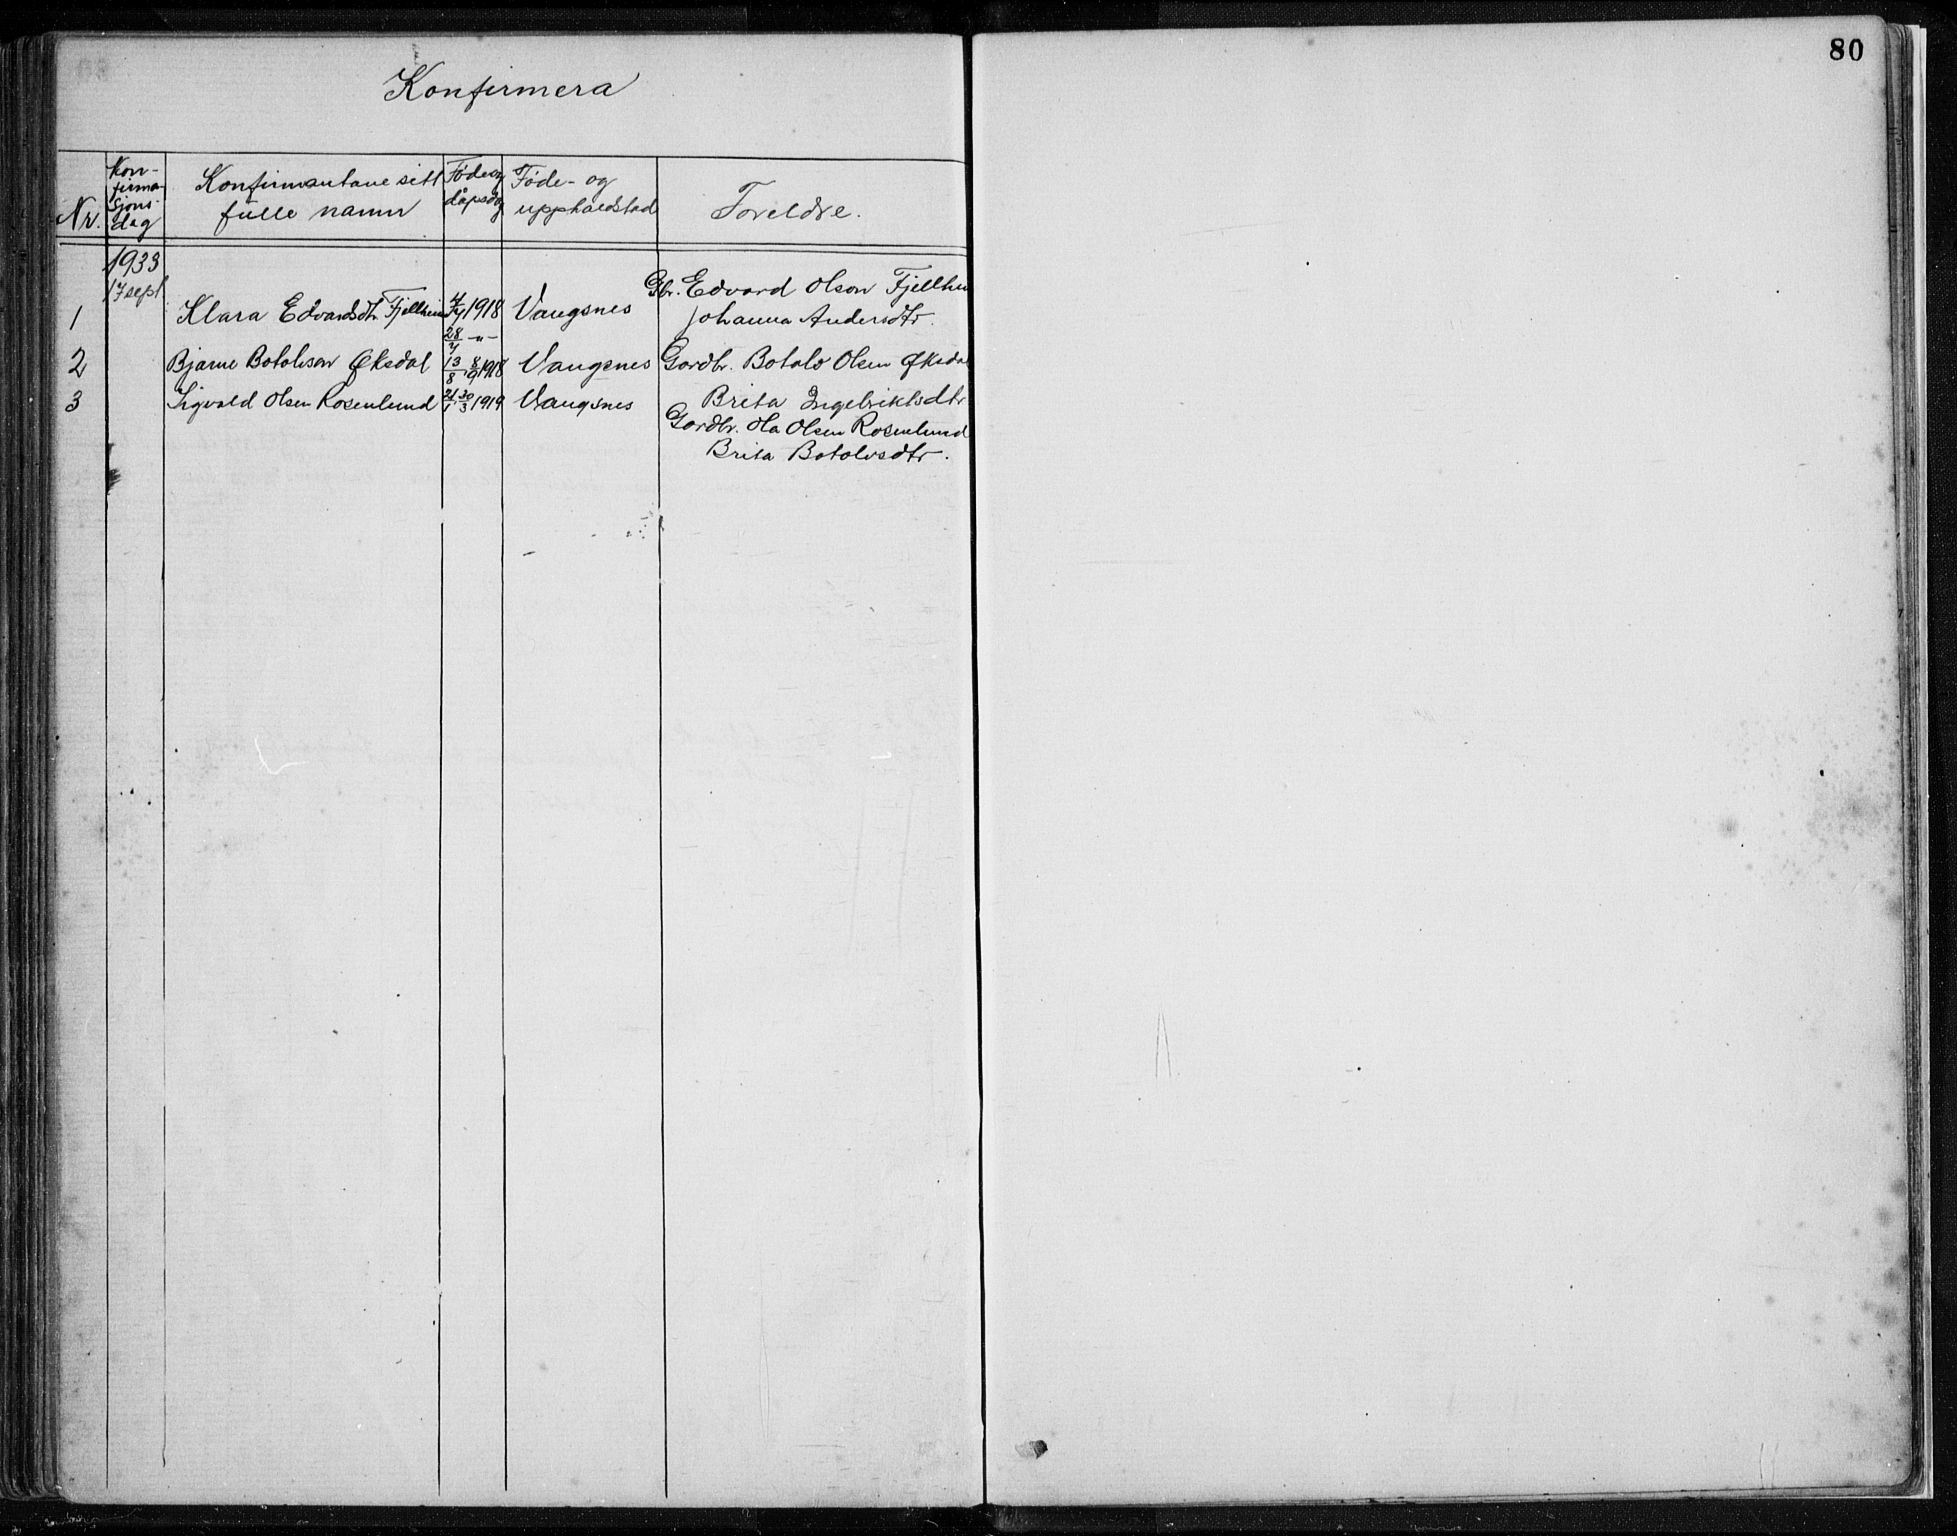 80
Konfirmera
Nr.
Kon-
firma-
sjons-
dag
Konfirmantane sitt
fulle namn
Føde og
dåpsdag
Føde- og
uppheldstad
Foreldre.
1933
17 sept
1 Klara Edvardsdtr Fjellheim 1918 Vangsnes Gbr. Edvard Olson Fjellhei
28/4 -"- Johanna Andersdtr.
2 Bjarne Botolvson Øksdal 13/8 8/9 1918 Vangsnes Gardbr. Botolv Olsen Øksdal
Brita Ingebriktsdtr
3 Sigvald Olsen Rosenlund 21/1 30/3 1919 Vangsnes Gardbr. Ola Olsen Rosenlund
Brita Botolvsdtr.